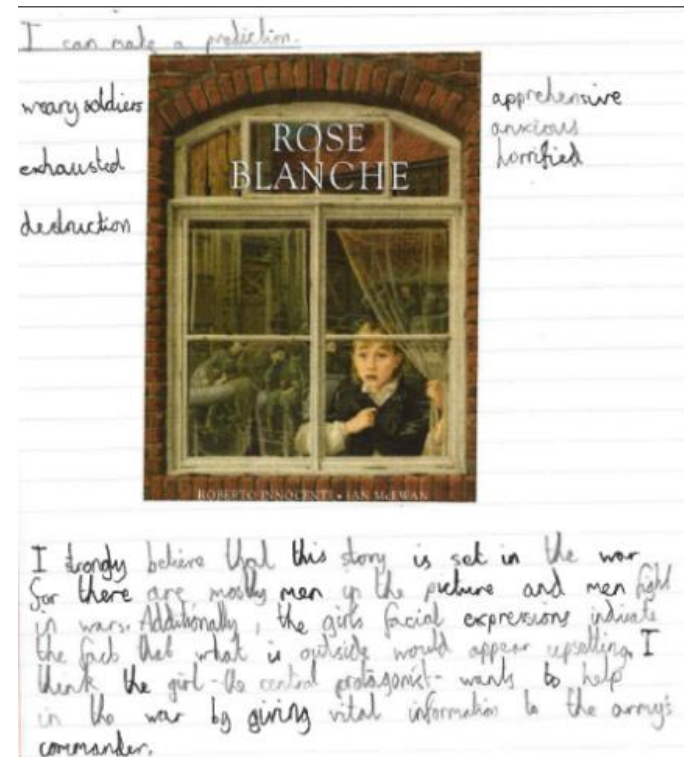 I can make a prediction.
weary soldiers
exhausted
destruction
apprehensive
anxious
horrified
ROSE
BLANCHE
ROBERTO INNOCENTI • IAN McEWAN
I strongly believe that this story is set in the war
for there are mostly men in the picture and men fight
in wars. Additionally, the girls facial expressions indicate
the fact that what is outside would appear upsetting. I
think the girl - the central protagonist - wants to help
in the war by giving vital information to the army's
commander.